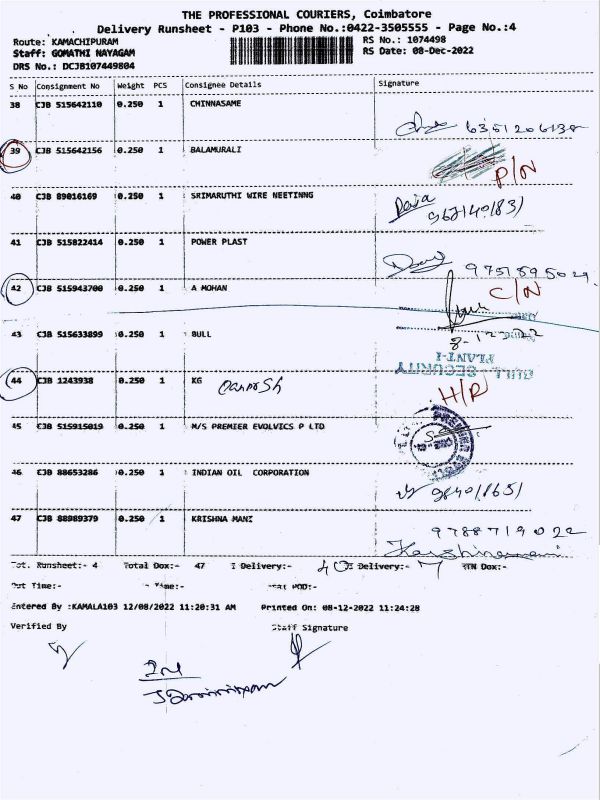 THE PROFESSIONAL COURIERS, Coimbatore
Delivery Runsheet - P103 - Phone No.:0422-3505555 - Page No.:4
Route: KAMACHIPURAM RS No.: 1074498
Staff: GOMATHI NAYAGAM RS Date: 08-Dec-2022
DRS No.: DCJB107449804
S No Consignment No Weight PCS Consignee Details Signature
38 CJB 515642110 0.250 1 CHINNASAME
6351206138
39 CJB 515642156 0.250 1 BALAMURALI
P/N
40 CJB 89016169 0.250 1 SRIMARUTHI WIRE NEETINNG
Raja
41 CJB 515822414 0.250 1 POWER PLAST
42 CJB 515943700 0.250 1 A MOHAN
C/N
43 CJB 515633899 0.250 1 BULL
BULL SECURITY
PLANT-I
44 CJB 1243938 0.250 1 KG
H/R
45 CJB 515915019 0.250 1 M/S PREMIER EVOLVICS P LTD
46 CJB 88653286 0.250 1 INDIAN OIL CORPORATION
47 CJB 88989379 0.250 1 KRISHNA MANI
9788719022
Tot. Runsheet:- 4 Total Dox:- 47 Delivery:- 40 Delivery:- 7 RTN Dox:-
Out Time:- Time:- POD:-
Entered By :KAMALA103 12/08/2022 11:20:31 AM Printed On: 08-12-2022 11:24:28
Verified By Staff Signature